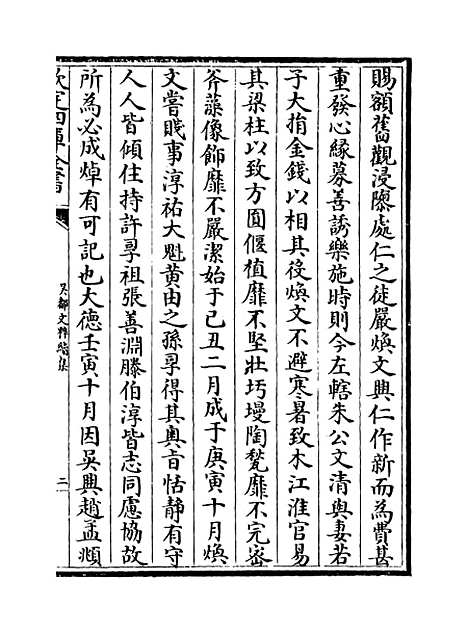 賜額舊觀浸隳處仁之徒嚴煥文興仁作新而為費甚
重發心緣募善誘樂施時則今左轄朱公文清與妻若
子大捐金錢以相其役煥文不避寒暑致木江淮官易
其梁柱以致方圓偃植靡不堅壯圬墁陶甃靡不完密
斧藻像飾靡不嚴潔始于己丑二月成于庚寅十月煥
文嘗賤事淳祐大魁黄由之孫孚得其奥旨恬静有守
人人皆傾住持許孚祖張善淵滕伯淳皆志同慮協故
所為必成焯有可記也大德壬寅十月因吳興趙孟頫
欽定四庫全書
吳都文粹續集
二